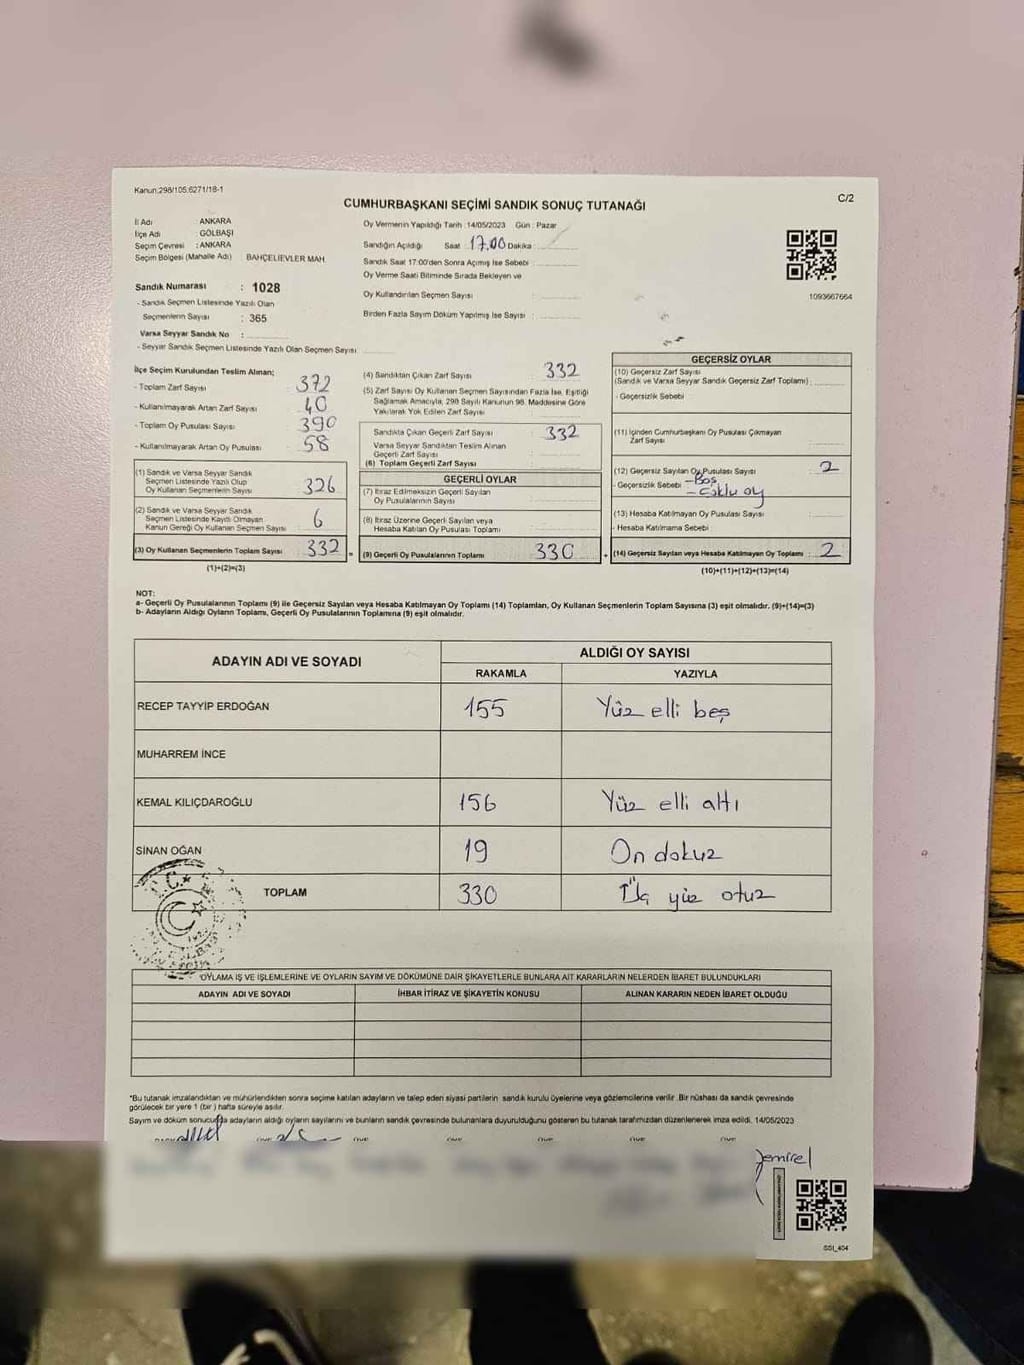 Kanun:298/105.6271/18-1
C/2
CUMHURBAŞKANI SEÇİMİ SANDIK SONUÇ TUTANAĞI
İl Adı ANKARA
İlçe Adı : GÖLBAŞI
Seçim Çevresi : ANKARA
Seçim Bölgesi (Mahalle Adı) BAHÇELİEVLER MAH.
Sandık Numarası : 1028
- Sandık Seçmen Listesinde Yazılı Olan
Seçmenlerin Sayısı : 365
Varsa Seyyar Sandık No :
- Seyyar Sandık Seçmen Listesinde Yazılı Olan Seçmen Sayısı
Oy Vermenin Yapıldığı Tarih : 14/05/2023 Gün : Pazar
Sandığın Açıldığı Saat 17.00 Dakika :
Sandık Saat 17:00'den Sonra Açılmış İse Sebebi :
Oy Verme Saati Bitiminde Sırada Bekleyen ve
Oy Kullandırılan Seçmen Sayısı :
Birden Fazla Sayım Döküm Yapılmış İse Sayısı :
1093667664
İlçe Seçim Kurulundan Teslim Alınan;
- Toplam Zarf Sayısı 372
- Kullanılmayarak Artan Zarf Sayısı 40
- Toplam Oy Pusulası Sayısı 390
- Kullanılmayarak Artan Oy Pusulası 58
(1) Sandık ve Varsa Seyyar Sandık
Seçmen Listesinde Yazılı Olup
Oy Kullanan Seçmenlerin Sayısı 326
(2) Sandık ve Varsa Seyyar Sandık
Seçmen Listesinde Kayıtlı Olmayan
Kanun Gereği Oy Kullanan Seçmen Sayısı 6
(3) Oy Kullanan Seçmenlerin Toplam Sayısı 332 =
(1)+(2)=(3)
(4) Sandıktan Çıkan Zarf Sayısı 332
(5) Zarf Sayısı Oy Kullanan Seçmen Sayısından Fazla İse, Eşitliği
Sağlamak Amacıyla, 298 Sayılı Kanunun 98. Maddesine Göre
Yakılarak Yok Edilen Zarf Sayısı
Sandıkta Çıkan Geçerli Zarf Sayısı 332
Varsa Seyyar Sandıktan Teslim Alınan
Geçerli Zarf Sayısı
(6) Toplam Geçerli Zarf Sayısı
GEÇERLİ OYLAR
(7) İtiraz Edilmeksizin Geçerli Sayılan
Oy Pusulalarının Sayısı
(8) İtiraz Üzerine Geçerli Sayılan veya
Hesaba Katılan Oy Pusulası Toplamı
(9) Geçerli Oy Pusulalarının Toplamı 330 +
GEÇERSİZ OYLAR
(10) Geçersiz Zarf Sayısı
(Sandık ve Varsa Seyyar Sandık Geçersiz Zarf Toplamı)
- Geçersizlik Sebebi :
(11) İçinden Cumhurbaşkanı Oy Pusulası Çıkmayan
Zarf Sayısı
(12) Geçersiz Sayılan Oy Pusulası Sayısı 2
- Geçersizlik Sebebi - Boş
- Çoklu oy
(13) Hesaba Katılmayan Oy Pusulası Sayısı
- Hesaba Katılmama Sebebi
(14) Geçersiz Sayılan veya Hesaba Katılmayan Oy Toplamı : 2
(10)+(11)+(12)+(13)=(14)
NOT:
a- Geçerli Oy Pusulalarının Toplamı (9) ile Geçersiz Sayılan veya Hesaba Katılmayan Oy Toplamı (14) Toplamları, Oy Kullanan Seçmenlerin Toplam Sayısına (3) eşit olmalıdır. (9)+(14)=(3)
b- Adayların Aldığı Oyların Toplamı, Geçerli Oy Pusulalarının Toplamına (9) eşit olmalıdır.
ADAYIN ADI VE SOYADI ALDIĞI OY SAYISI
RAKAMLA YAZIYLA
RECEP TAYYİP ERDOĞAN 155 Yüz elli beş
MUHARREM İNCE
KEMAL KILIÇDAROĞLU 156 Yüz elli altı
SİNAN OĞAN 19 On dokuz
TOPLAM 330 Üç yüz otuz
T.C.
OYLAMA İŞ VE İŞLEMLERİNE VE OYLARIN SAYIM VE DÖKÜMÜNE DAİR ŞİKAYETLERLE BUNLARA AİT KARARLARIN NELERDEN İBARET BULUNDUKLARI
ADAYIN ADI VE SOYADI İHBAR İTİRAZ VE ŞİKAYETİN KONUSU ALINAN KARARIN NEDEN İBARET OLDUĞU
*Bu tutanak imzalandıktan ve mühürlendikten sonra seçime katılan adayların ve talep eden siyasi partilerin sandık kurulu üyelerine veya gözlemcilerine verilir .Bir nüshası da sandık çevresinde
görülecek bir yere 1 (bir ) hafta süreyle asılır.
Sayım ve döküm sonucunda adayların aldığı oyların sayılarını ve bunların sandık çevresinde bulunanlara duyurulduğunu gösteren bu tutanak tarafımızdan düzenlenerek imza edildi. 14/05/2023